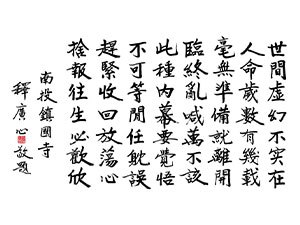 世間虛幻不實在
人命歲數有幾載
毫無準備就離開
臨終亂喊萬不該
此種內幕要覺悟
不可等閒任耽誤
趕緊收回放蕩心
捨報往生必歡欣
南投鎮國寺
釋廣心敬題